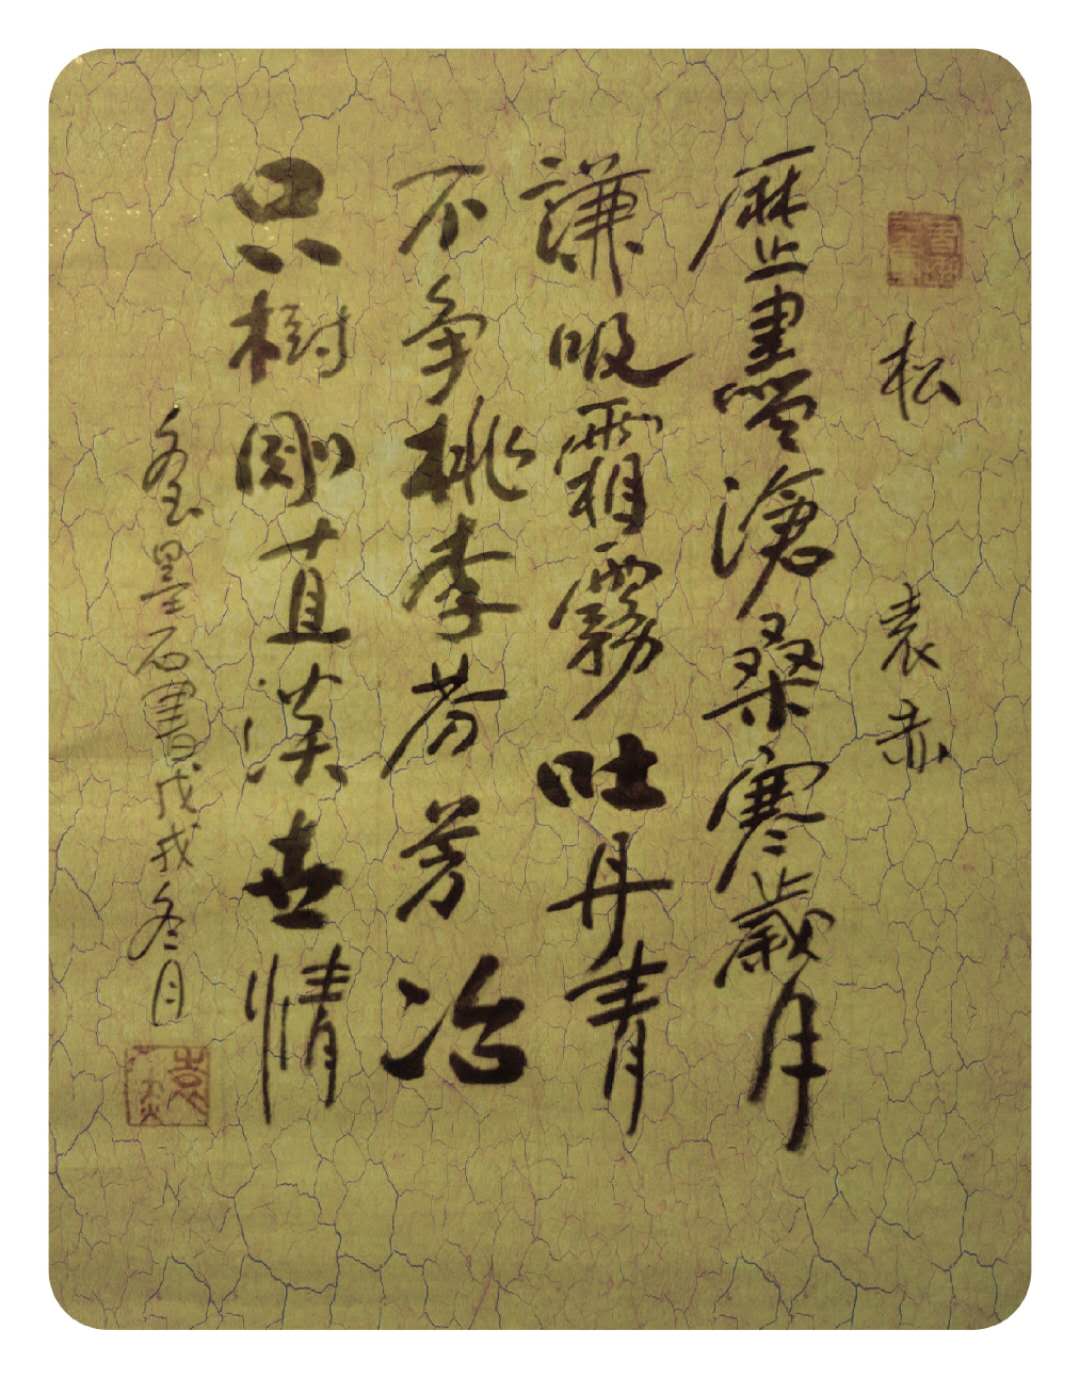 松 袁赤
歷盡滄桑寒歲月
謙吸霜霧吐丹青
不争桃李芬芳冶
只樹剛直漢情
墨石書戊戌冬月
袁赤